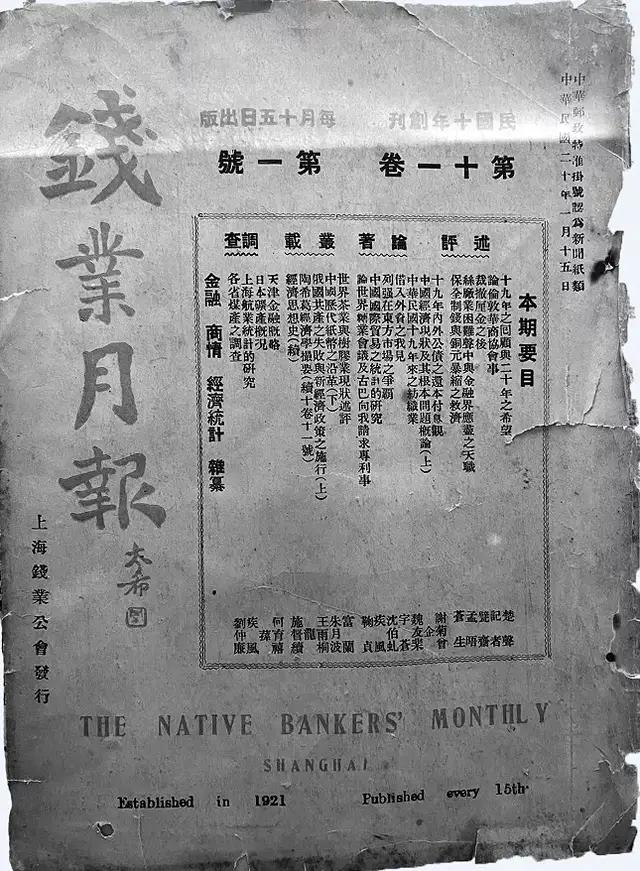 中華郵政特准掛號認為新聞紙類
中華民國二十年一月十五日
民國十年創刊 每月十五日出版
第十一卷 第一號
述評 論著 叢載 調查
本期要目
十九年之回顧與二十年之希望
論倫敦華商協會事
裁撤厘金之後
絲廠業困難聲中與金融界應盡之天職
保全制錢與銅元暴縮之救濟
十九年內外公債之還本付息觀
中國經濟現狀及其根本問題概論(上)
中華民國十九年來之紡織業
借入外資之我見
列强在東方市場之爭霸
中國國際貿易之統計的研究
論世界糖業會議及古巴向我請求專利事
世界茶業與樹膠業現狀述評
中國歷代紙幣之沿革(下)
俄國共產之失敗與新經濟政策之施行(上)
陶希葛經濟學撮要(續十卷十一號)
經濟思想史(續)
天津金融概略
日本礦產概況
上海航業統計的研究
各省煤產之調查
金融 商情 經濟統計 雜纂
楚聲
記者
孟晤
蒼生
謝菊曾
魏友棐
宇蒼
沈伯虬
疾風
鞠貞
富蘭
朱月波
王雨桐
施督續
何育禧
疾風
劉仲廉
錢業月報
太希
上海錢業公會發行
THE NATIVE BANKERS' MONTHLY
SHANGHAI
Established in 1921 Published every 15th